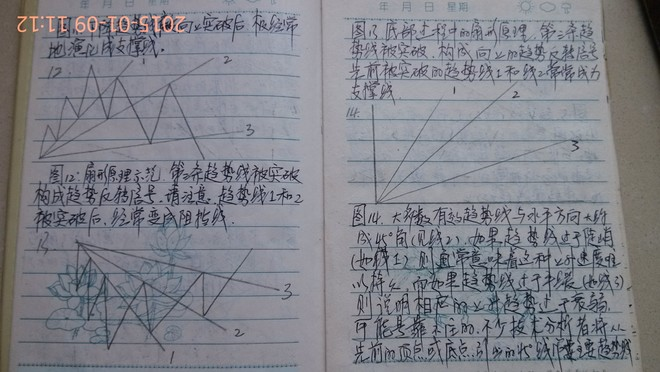 2015/01/09 11:12
年 月 日 星期
向上突破后 被经常
地演化成支撑线.
12
1
2
3
图12: 扇形原理示范 第三条趋势线被突破
构成趋势反转信号. 请注意. 趋势线1和2
被突破后, 经常变成阻挡线.
13
3
2
1
年 月 日 星期
图13 底部过程中的扇形原理. 第三条趋
势线被突破 构成向上的趋势反转信号
先前被突破的趋势线1和线2常常成为
支撑线
14.
1
2
3
图14. 大多数有效趋势线与水平方向大时
成45°角(见线2). 如果趋势线过于陡峭
(如线1) 则通常意味着这种上升速度难
以持久 而如果趋势线过于平缓(如线3)
则说明相应的上升趋势过于衰弱
可能是靠不住的. 不少技术分析者将从
先前的顶点或底点引出的45°线作主要趋势线